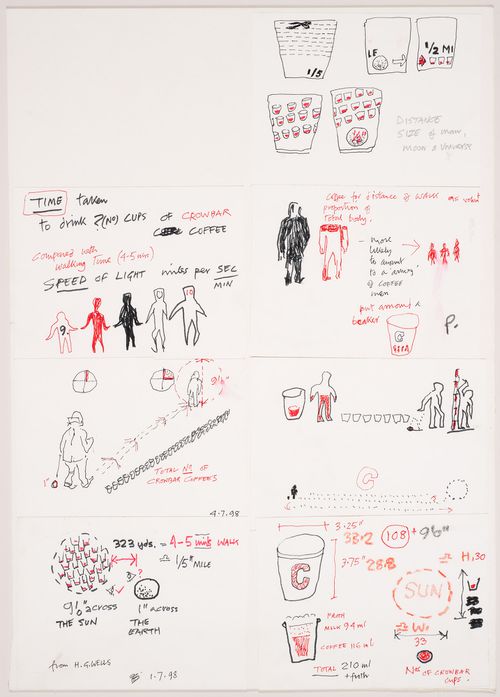 1/5
LE
1/2 MI
DISTANCE
SIZE of moon,
MOON & UNIVERSE
TIME taken
to drink ?(NO) CUPS OF CROWBAR
COFFEE
Compared with
Walking Time (4-5 min)
SPEED OF LIGHT miles per SEC
MIN
9.
10
Coffee for distance of WALK
proportion of
total body.
- more
likely
to amount
to a 'army'
of COFFEE
men
put amount &
beaker
C
P.
9'6"
1"
TOTAL No OF
CROWBAR COFFEES
4.7.98
C
323 yds. = 4-5 mins WALK
= 1/5" MILE
3.?
9'6" across
THE SUN
1" across
THE
EARTH
from H.G.WELLS
1.7.98
3.25"
33.2
108 + 9'6"
3.75"
28.8
C
H.30
SUN
W.
33
FROTH
MILK 94 ml
COFFEE 116 ml
TOTAL 210 ml
+ froth
No OF CROWBAR
CUPS.